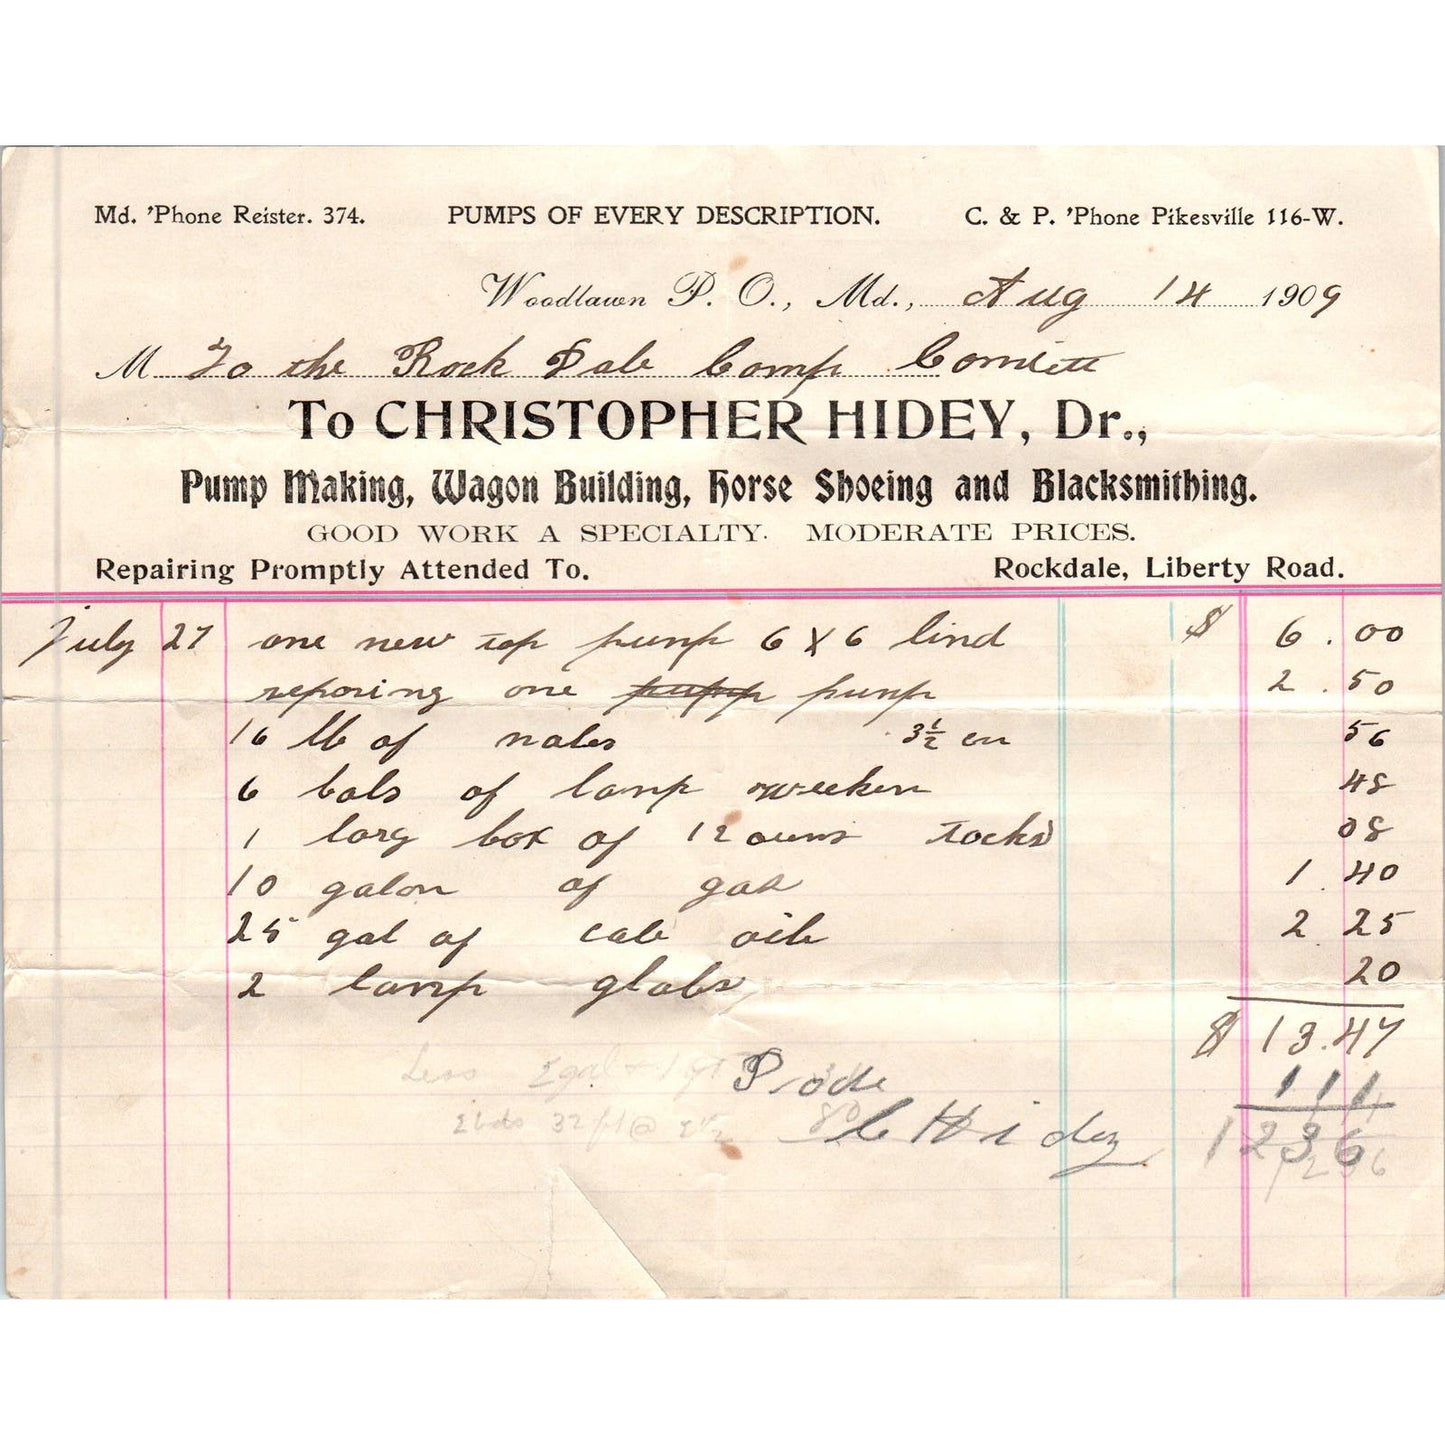 Md. 'Phone Reister. 374. PUMPS OF EVERY DESCRIPTION. C. & P. 'Phone Pikesville 116-W.
Woodlawn P. O., Md., Aug 14 1909
M To the Rock Dale Camp
To CHRISTOPHER HIDEY, Dr.,
Pump Making, Wagon Building, Horse Shoeing and Blacksmithing.
GOOD WORK A SPECIALTY. MODERATE PRICES.
Repairing Promptly Attended To. Rockdale, Liberty Road.
July 27 one new top pump 6 x 6 lind $ 6.00
reporing one pump 2.50
16 lb of nales 3½ 56
6 of lamp 48
1 larg box of 12 ouns tocks 08
10 galon of gas 1.40
25 gal of cole oile 2.25
2 lamp globs 20
$ 13.47
Less 1 11
C Hidey 12 36